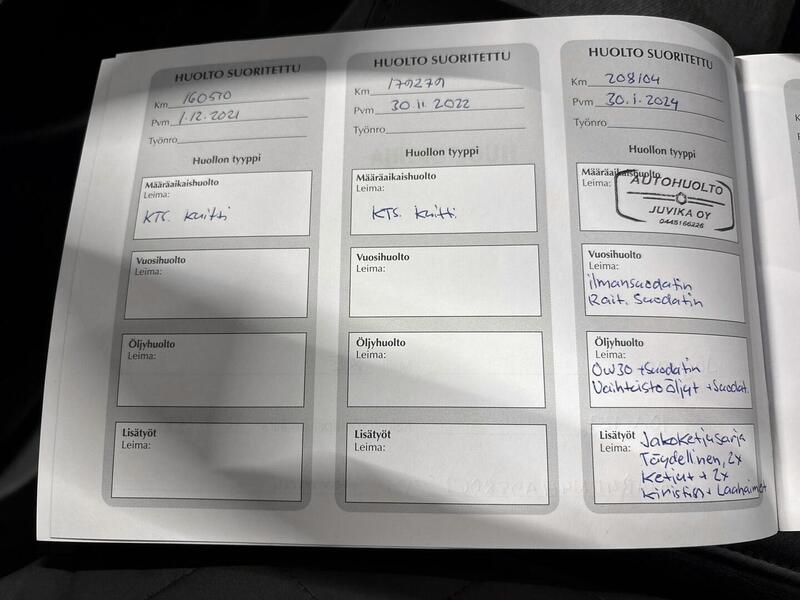 HUOLTO SUORITETTU
Km 160510
Pvm 1.12.2021
Työnro
Huollon tyyppi
Määräaikaishuolto
Leima:
KTS. kuitti
Vuosihuolto
Leima:
Öljyhuolto
Leima:
Lisätyöt
Leima:
HUOLTO SUORITETTU
Km 179279
Pvm 30.11.2022
Työnro
Huollon tyyppi
Määräaikaishuolto
Leima:
KTS. kuitti
Vuosihuolto
Leima:
Öljyhuolto
Leima:
Lisätyöt
Leima:
HUOLTO SUORITETTU
Km 208104
Pvm 30.1.2024
Työnro
Huollon tyyppi
Määräaikaishuolto
Leima:
AUTOHUOLTO
JUVIKA OY
0445166226
Vuosihuolto
Leima:
ilmansuodatin
Rait. Suodatin
Öljyhuolto
Leima:
0W30 + Suodatin
Vaihteisto Öljyt + Suodat.
Lisätyöt
Leima:
Jakoketjusarja
Täydellinen, 2x
Ketjut + 2x